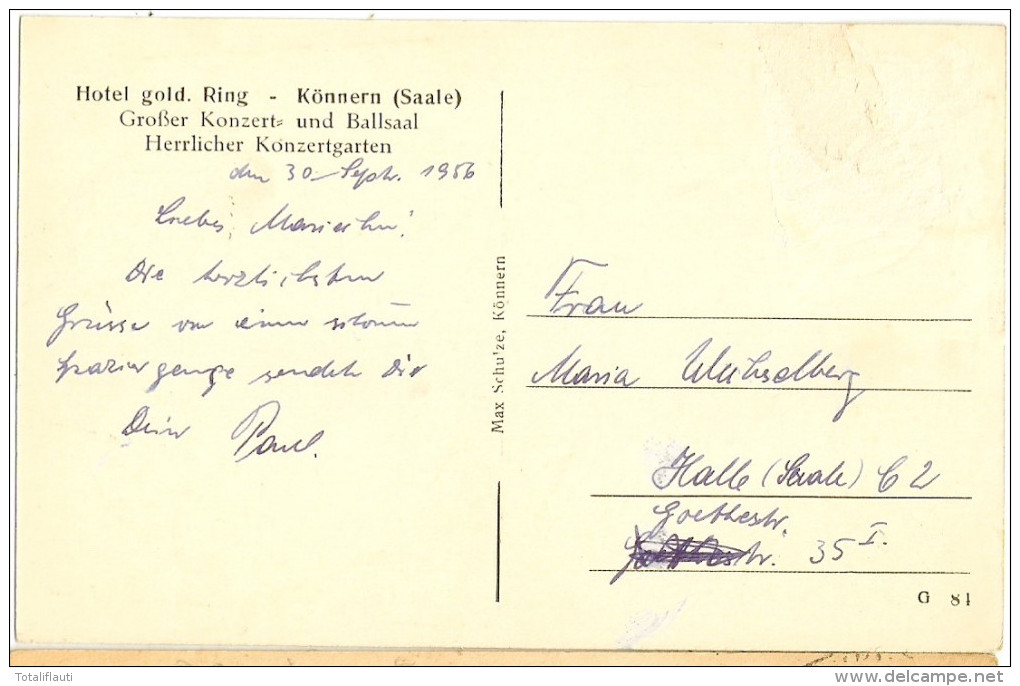 Hotel gold. Ring - Könnern (Saale)
Großer Konzert- und Ballsaal
Herrlicher Konzertgarten
den 30. Sept. 1956
Liebes Mariechen!
Die herzlichsten
Grüsse von einem schönen
Spaziergange sendet Dir
Dein Paul.
Max Schulze, Könnern
Frau
Maria
Halle (Saale) C 2
Goethestr.
35 I.
G 81
Totaliflauti
delcampe.net